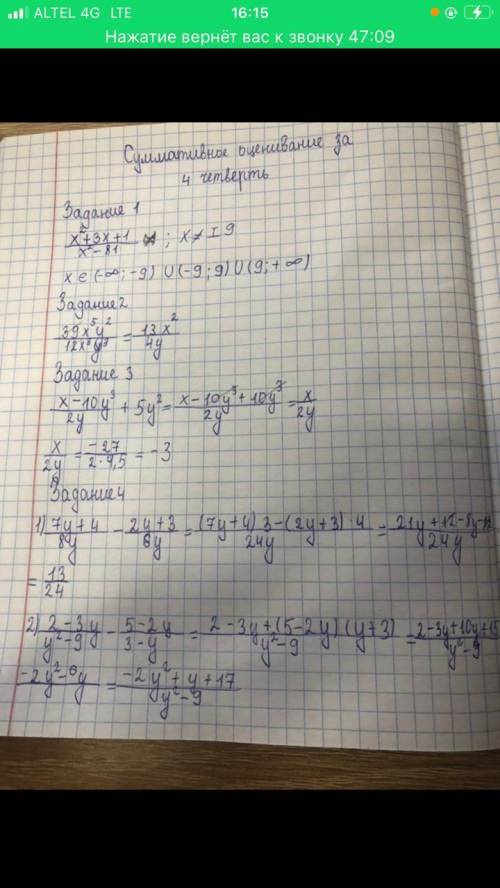 ALTEL 4G LTE 16:15
Нажатие вернёт вас к звонку 47:09
Суммативное оценивание за
4 четверть
Задание 1
x²+3x+1 / x²-81 ; x ≠ ± 9
x ∈ (-∞; -9) ∪ (-9; 9) ∪ (9; +∞)
Задание 2
39x⁵y² / 12x³y³ = 13x² / 4y
Задание 3
x-10y³ / 2y + 5y² = x-10y³+10y³ / 2y = x / 2y
x / 2y = -27 / 2·4,5 = -3
Задание 4
1) 7y+4 / 8y - 2y+3 / 6y = (7y+4) 3-(2y+3)·4 / 24y = 21y+12-8y-12 / 24y
= 13 / 24
2) 2-3y / y²-9 - 5-2y / 3-y = 2-3y+(5-2y)(y+3) / y²-9 = 2-3y+10y+15 / y²-9
-2y²-6y = -2y²+y+17 / y²-9